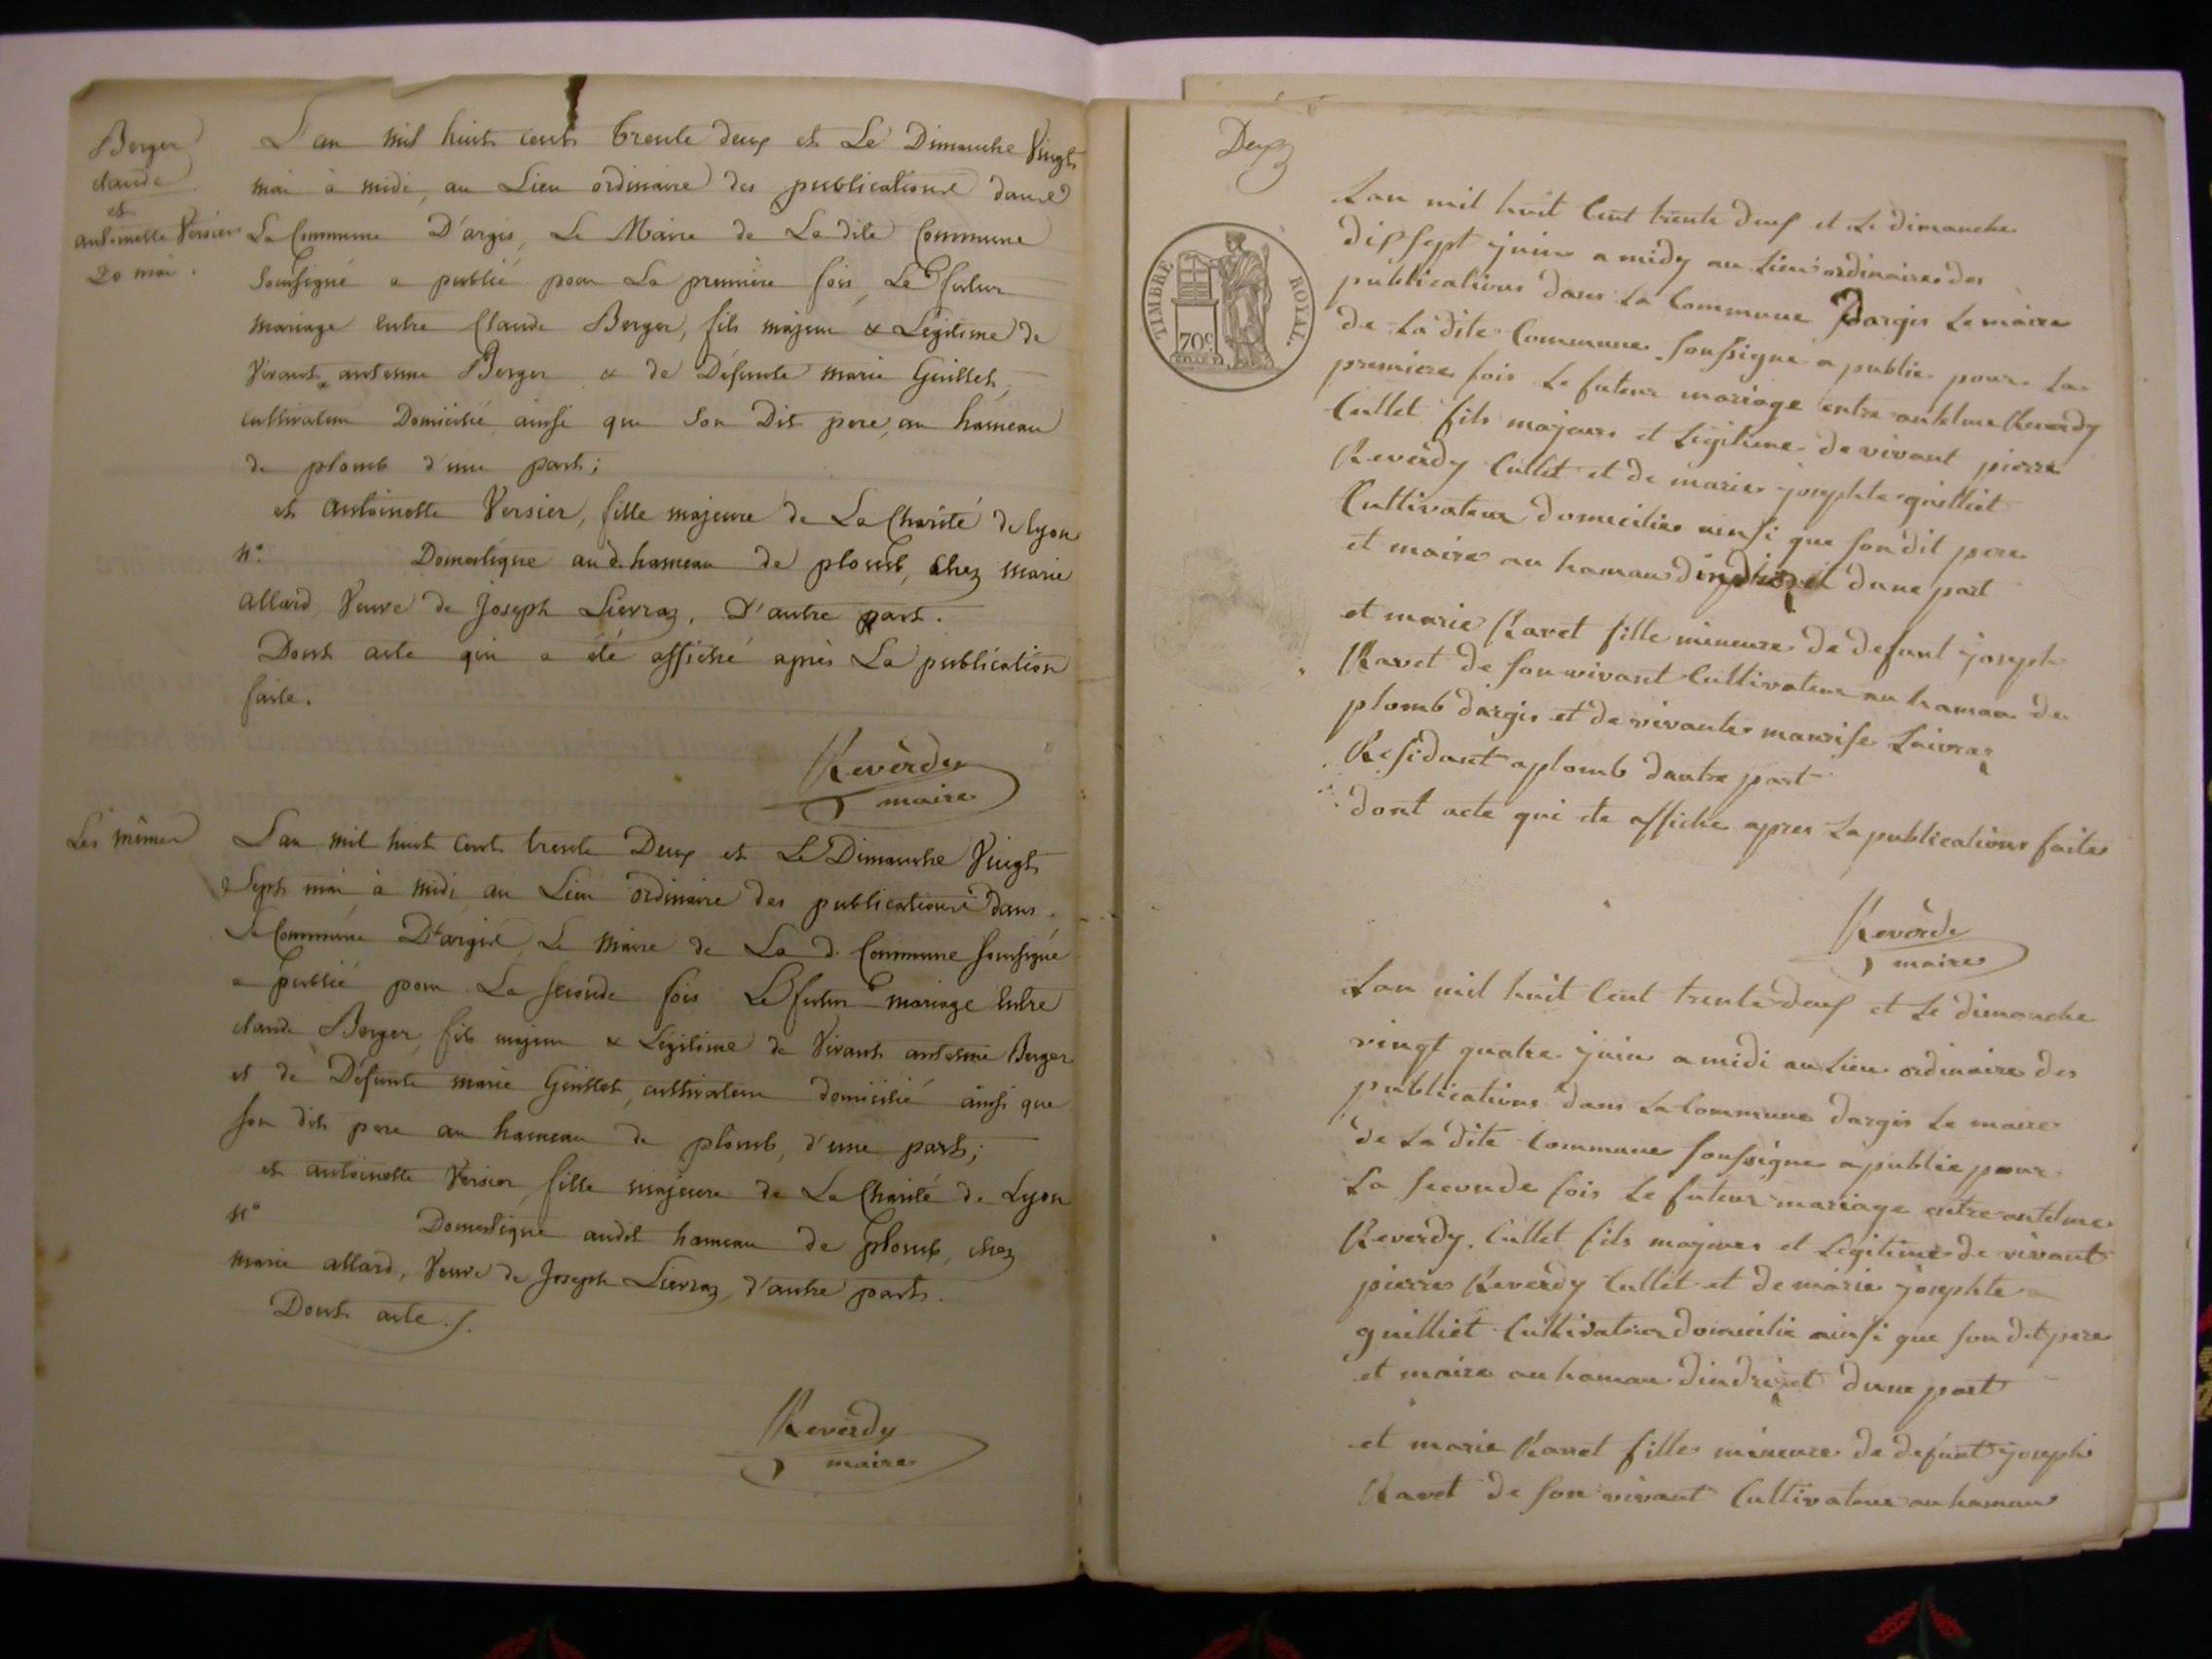 Berger
claude
et
antoinette Versier
20 mai.
L'an mil huit cent trente deux et Le Dimanche Vingt
mai à midi, au Lieu ordinaire des publications dans
La Commune D'argis, Le Maire de La dite Commune
Soussigné a publié pour La première fois, Le futur
mariage entre Claude Berger, fils majeur & Légitime de
Vivant antelme Berger & de Défunte marie Guillet,
cultivateur Domicilié ainsi que Son Dit pere, au hameau
de plomb d'une part;
et antoinette Versier, fille majeure de La Charité de lyon
n° Domestique aud. hameau de plomb, chez marie
allard, Veuve de Joseph Lievraz, D'autre part.
Dont acte qui a été affiché après La publication
faite.
Reverdy
maire
Les mêmes
L'an mil huit cent trente Deux et Le Dimanche Vingt
Sept mai à midi au Lieu ordinaire des publications dans
La Commune D'argis, Le Maire de La d. Commune soussigné
a publié pour La seconde fois Le futur mariage entre
claude Berger fils majeur & Légitime de Vivant antelme Berger
et de Défunte marie Guillet, cultivateur domicilié ainsi que
son dit pere au hameau de plomb, d'une part;
et antoinette Versier fille majeure de La Charité de Lyon
n° Domestique audit hameau de plomb, chez
marie allard, Veuve de Joseph Lievraz, d'autre part.
Dont acte.
Reverdy
maire
Deux
TIMBRE ROYAL.
70c
Lan mil huit Cent trente deux et Le dimanche
dix sept juin a midy au Lieu ordinaire des
publications dans La Commune Dargis Le maire
de La dite Commune soussigne a publie pour La
premiere fois Le futeur mariage entre antelme Reverdy
Cullet fils majeur et Legitime de vivant pierre
Reverdy Cullet et de marie josephte guilliet
Cultivateur domicilie ainsi que son dit pere
et maire au hamau dindrizet dune part
et marie Ravet fille mineure de defunt joseph
Ravet de son vivant Cultivateur au hamau de
plomb dargis et de vivante maurise Laivraz
Residant a plomb dautre part
dont acte qui ete affiche apres La publications faites
Reverdy
maire
Lan mil huit Cent trente deux et Le dimanche
vingt quatre juin a midi au Lieu ordinaire des
publications dans La Commune dargis Le maire
de La dite Commune soussigne a publie pour
La seconde fois Le futeur mariage entre antelme
Reverdy Cullet fils majeur et Legitime de vivant
pierre Reverdy Cullet et de marie josephte
guilliet Cultivateur domicilie ainsi que son dit pere
et maire au hamau dindrizet dune part
et marie Ravet fille mineure de defunt joseph
Ravet de son vivant Cultivateur au hamau